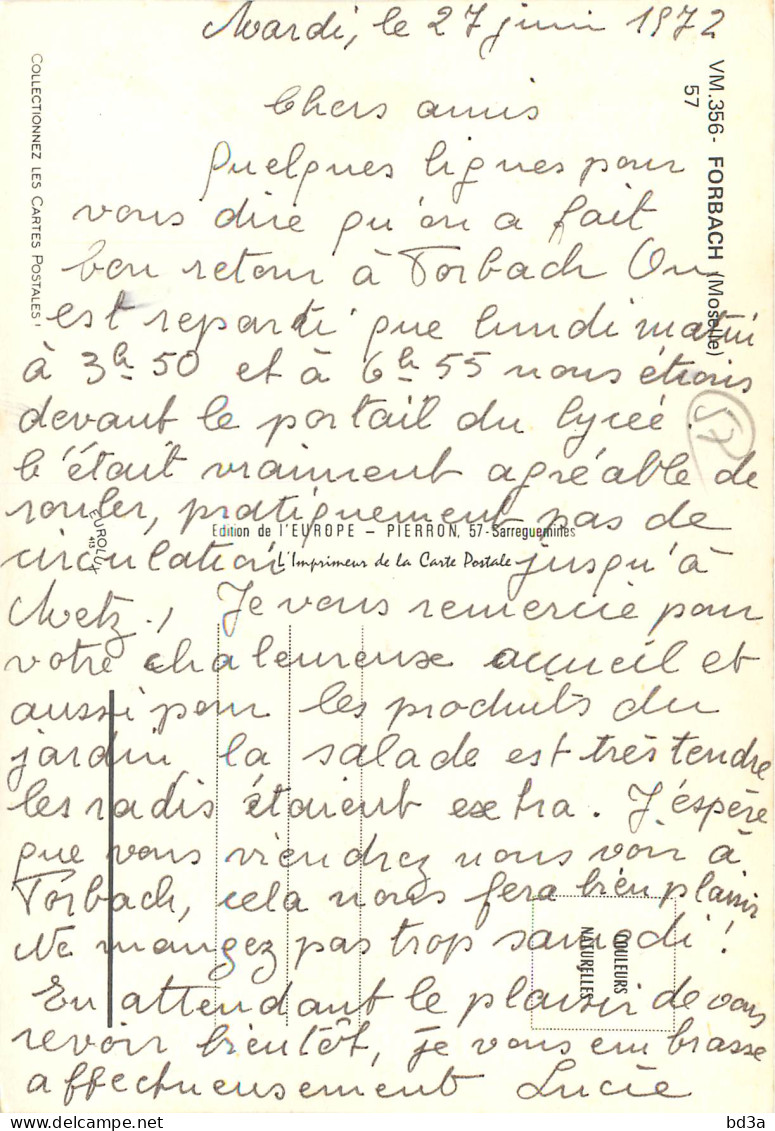 Mardi, le 27 juin 1972
Chers amis
Quelques lignes pour
vous dire qu'on a fait
bon retour à Forbach On
est reparti que lundi matin
à 3h 50 et à 6h 55 nous étions
devant le portail du lycée.
C'était vraiment agréable de
rouler, pratiquement pas de
circulation jusqu'à
Metz., Je vous remercie pour
votre chaleureux accueil et
aussi pour les produits du
jardin la salade est très tendre
les radis étaient extra. J'espère
que vous viendrez nous voir à
Forbach, cela nous fera bien plaisir
Ne mangez pas trop samedi !
En attendant le plaisir de vous
revoir bientôt, je vous embrasse
affectueusement Lucie
VM.356 - FORBACH (Moselle)
57
57
COLLECTIONNEZ LES CARTES POSTALES !
EUROLUX
413
Edition de l'EUROPE – PIERRON, 57-Sarreguemines
L'Imprimeur de la Carte Postale
COULEURS
NATURELLES
bd3a